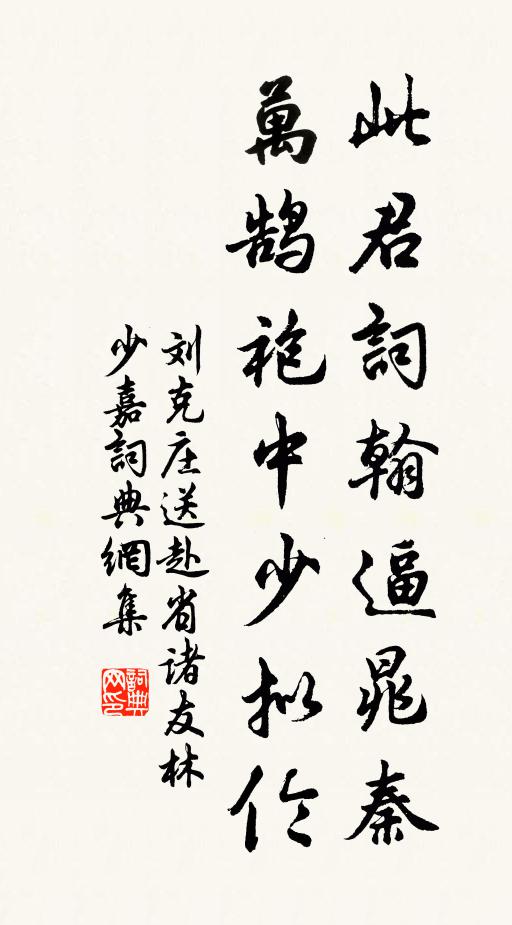 此君詞翰逼晁秦
萬鹄袍中少拟伦
刘克庄送赴省诸友林
少嘉詞典網集
詞典
网印